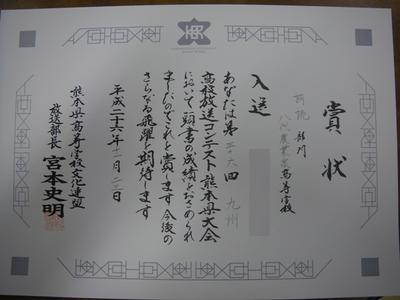 賞状
朗読部門
八代農業泉高等学校
入選
あなたは第三六回九州
高校放送コンテスト熊本県大会
において頭書の成績をおさめられ
ましたのでこれを賞します今後の
さらなる飛躍を期待します
平成二十六年十一月二三日
熊本県高等学校文化連盟
放送部長 宮本史明